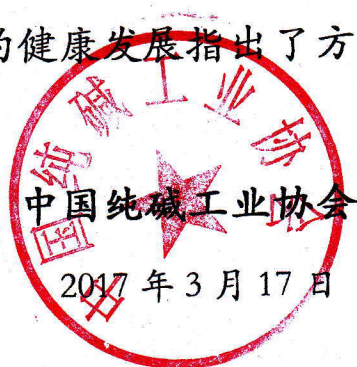 的健康发展指出了方
中国纯碱工业协会
中国纯碱工业协会
2017 年 3 月 17 日